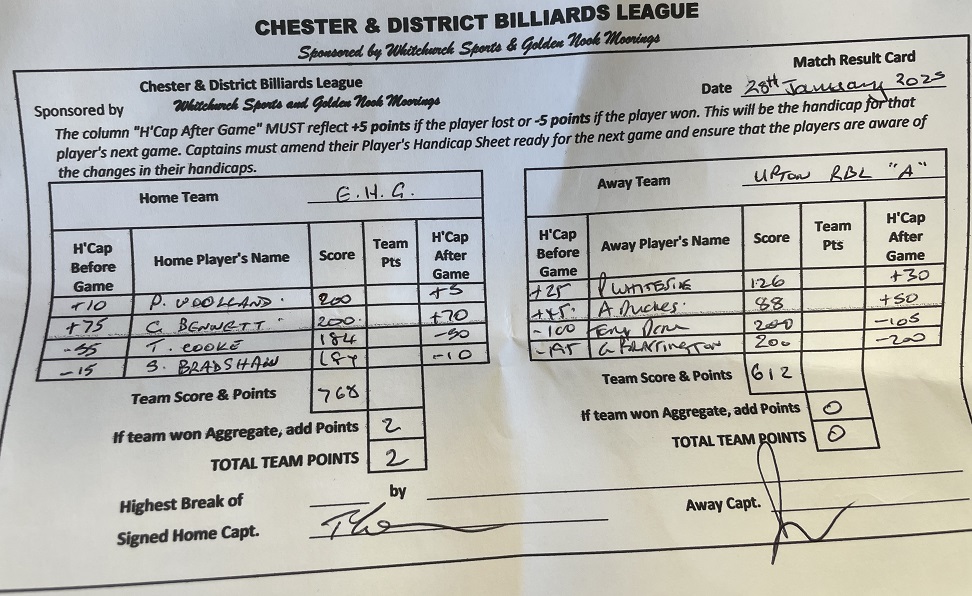 CHESTER & DISTRICT BILLIARDS LEAGUE
Sponsored by Whitchurch Sports & Golden Nook Moorings
Match Result Card
Chester & District Billiards League
Date 28th January 2025
Sponsored by Whitchurch Sports and Golden Nook Moorings
The column "H'Cap After Game" MUST reflect +5 points if the player lost or -5 points if the player won. This will be the handicap for that
player's next game. Captains must amend their Player's Handicap Sheet ready for the next game and ensure that the players are aware of
the changes in their handicaps.
Home Team E.H.G.
H'Cap Before Game Home Player's Name Score Team Pts H'Cap After Game
+10 P. WOOLLAND 200 +5
+75 G BENNETT 200 +70
-55 T. COOKE 184 -50
-15 S. BRADSHAW 184 -10
Team Score & Points 768
If team won Aggregate, add Points 2
TOTAL TEAM POINTS 2
Away Team UPTON RBL "A"
H'Cap Before Game Away Player's Name Score Team Pts H'Cap After Game
+25 P WHITESIDE 126 +30
+45 A Duckes 88 +50
-100 200 -105
-195 G PARTINGTON 200 -200
Team Score & Points 612
If team won Aggregate, add Points 0
TOTAL TEAM POINTS 0
Highest Break of by
Signed Home Capt.
Away Capt.